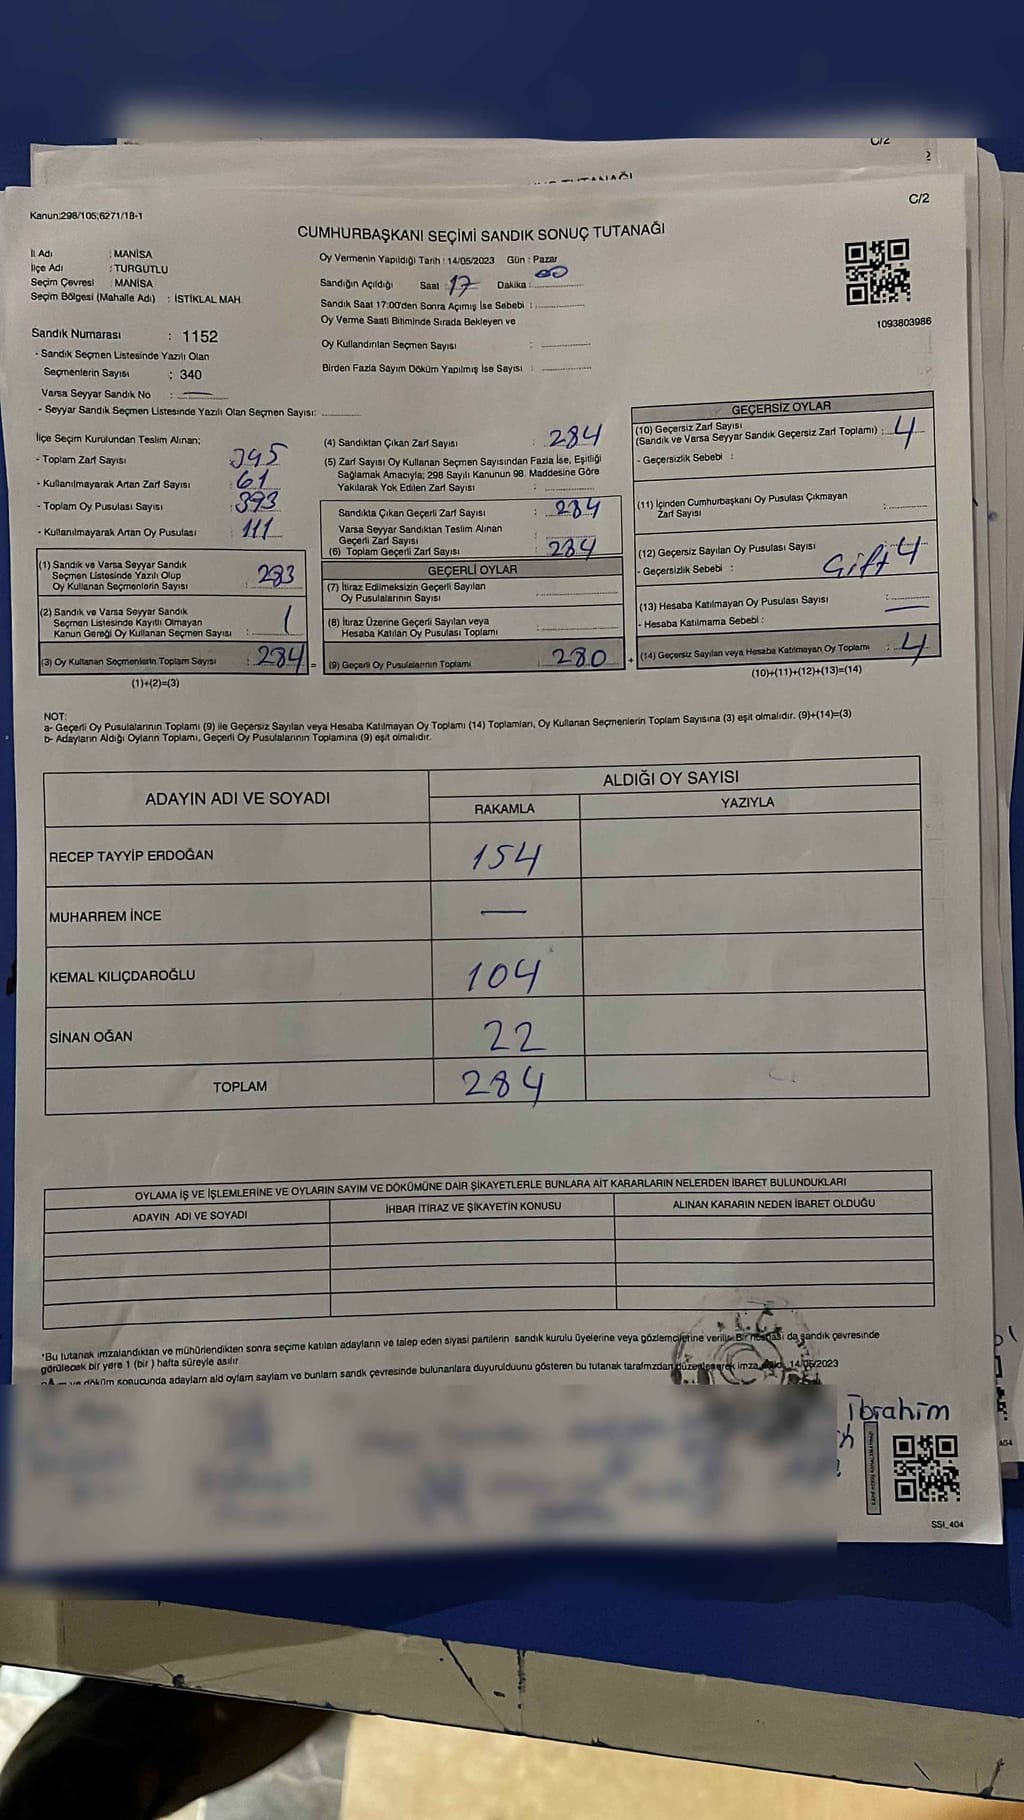 C/2
2
C/2
Kanun;298/105;6271/18-1
CUMHURBAŞKANI SEÇİMİ SANDIK SONUÇ TUTANAĞI
İl Adı : MANİSA
İlçe Adı : TURGUTLU
Seçim Çevresi : MANİSA
Seçim Bölgesi (Mahalle Adı) : İSTİKLAL MAH.
Sandık Numarası : 1152
- Sandık Seçmen Listesinde Yazılı Olan
Seçmenlerin Sayısı : 340
Varsa Seyyar Sandık No :
- Seyyar Sandık Seçmen Listesinde Yazılı Olan Seçmen Sayısı:
Oy Vermenin Yapıldığı Tarih : 14/05/2023 Gün : Pazar
Sandığın Açıldığı Saat : 17 Dakika : 00
Sandık Saat 17:00'den Sonra Açımış İse Sebebi :
Oy Verme Saati Bitiminde Sırada Bekleyen ve
Oy Kullandırılan Seçmen Sayısı :
Birden Fazla Sayım Döküm Yapılmış İse Sayısı :
1093803986
İlçe Seçim Kurulundan Teslim Alınan;
- Toplam Zarf Sayısı : 345
- Kullanılmayarak Artan Zarf Sayısı : 61
- Toplam Oy Pusulası Sayısı : 393
- Kullanılmayarak Artan Oy Pusulası : 111
(1) Sandık ve Varsa Seyyar Sandık
Seçmen Listesinde Yazılı Olup
Oy Kullanan Seçmenlerin Sayısı : 283
(2) Sandık ve Varsa Seyyar Sandık
Seçmen Listesinde Kayıtlı Olmayan
Kanun Gereği Oy Kullanan Seçmen Sayısı : 1
(3) Oy Kullanan Seçmenlerin Toplam Sayısı : 284 =
(1)+(2)=(3)
(4) Sandıktan Çıkan Zarf Sayısı : 284
(5) Zarf Sayısı Oy Kullanan Seçmen Sayısından Fazla İse, Eşitliği
Sağlamak Amacıyla; 298 Sayılı Kanunun 98. Maddesine Göre
Yakılarak Yok Edilen Zarf Sayısı :
Sandıkta Çıkan Geçerli Zarf Sayısı : 284
Varsa Seyyar Sandıktan Teslim Alınan
Geçerli Zarf Sayısı :
(6) Toplam Geçerli Zarf Sayısı : 284
GEÇERLİ OYLAR
(7) İtiraz Edilmeksizin Geçerli Sayılan
Oy Pusulalarının Sayısı :
(8) İtiraz Üzerine Geçerli Sayılan veya
Hesaba Katılan Oy Pusulası Toplamı :
(9) Geçerli Oy Pusulalarının Toplamı : 280 +
GEÇERSİZ OYLAR
(10) Geçersiz Zarf Sayısı
(Sandık ve Varsa Seyyar Sandık Geçersiz Zarf Toplamı) : 4
- Geçersizlik Sebebi :
(11) İçinden Cumhurbaşkanı Oy Pusulası Çıkmayan
Zarf Sayısı :
(12) Geçersiz Sayılan Oy Pusulası Sayısı : 4
- Geçersizlik Sebebi : Gift
(13) Hesaba Katılmayan Oy Pusulası Sayısı : —
- Hesaba Katılmama Sebebi :
(14) Geçersiz Sayılan veya Hesaba Katılmayan Oy Toplamı : 4
(10)+(11)+(12)+(13)=(14)
NOT:
a- Geçerli Oy Pusulalarının Toplamı (9) ile Geçersiz Sayılan veya Hesaba Katılmayan Oy Toplamı (14) Toplamları, Oy Kullanan Seçmenlerin Toplam Sayısına (3) eşit olmalıdır. (9)+(14)=(3)
b- Adayların Aldığı Oyların Toplamı, Geçerli Oy Pusulalarının Toplamına (9) eşit olmalıdır.
ADAYIN ADI VE SOYADI
ALDIĞI OY SAYISI
RAKAMLA YAZIYLA
RECEP TAYYİP ERDOĞAN 154
MUHARREM İNCE —
KEMAL KILIÇDAROĞLU 104
SİNAN OĞAN 22
TOPLAM 284
OYLAMA İŞ VE İŞLEMLERİNE VE OYLARIN SAYIM VE DÖKÜMÜNE DAİR ŞİKAYETLERLE BUNLARA AİT KARARLARIN NELERDEN İBARET BULUNDUKLARI
ADAYIN ADI VE SOYADI İHBAR İTİRAZ VE ŞİKAYETİN KONUSU ALINAN KARARIN NEDEN İBARET OLDUĞU
*Bu tutanak imzalandıktan ve mühürlendikten sonra seçime katılan adayların ve talep eden siyasi partilerin sandık kurulu üyelerine veya gözlemcilerine verilir. Bir nüshası da sandık çevresinde
görülecek bir yere 1 (bir ) hafta süreyle asılır
döküm sonucunda adayların ald oyların sayları ve bunların sandk çevresinde bulunanlara duyurulduunu gösteren bu tutanak tarafmzdan düzenlenerek imza 14/05/2023
İbrahim
SSI_404